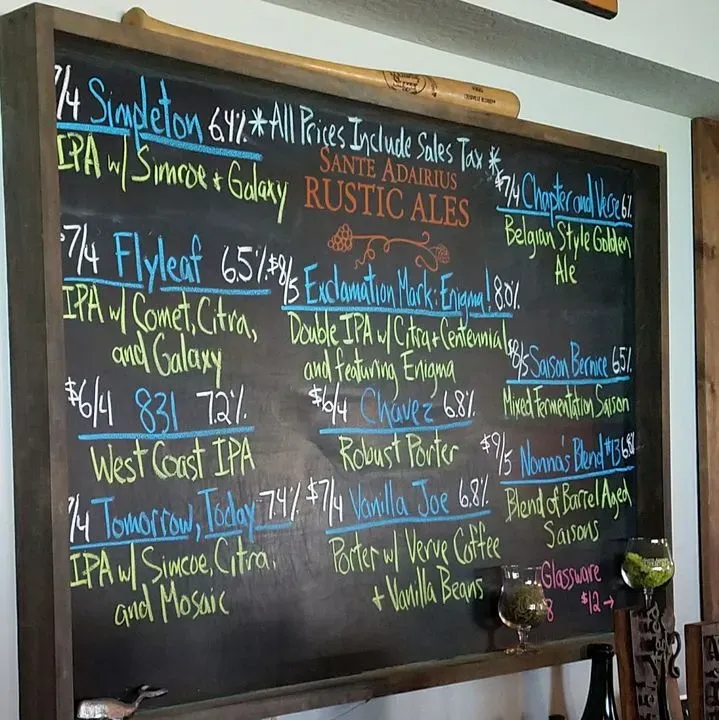 7/4 Simpleton 6.4% *All Prices Include Sales Tax*
IPA w/ Simcoe + Galaxy
SANTE ADAIRIUS
RUSTIC ALES
7/4 Flyleaf 6.5%
IPA w/ Comet, Citra,
and Galaxy
$6/4 831 7.2%
West Coast IPA
7/4 Tomorrow, Today 7.4%
IPA w/ Simcoe, Citra,
and Mosaic
$8/5 Exclamation Mark: Enigma! 8.0%
Double IPA w/ Citra + Centennial
and featuring Enigma
$6/4 Chavez 6.8%
Robust Porter
$7/4 Vanilla Joe 6.8%
Porter w/ Verve Coffee
+ Vanilla Beans
$7/4 Chapter and Verse 6%
Belgian Style Golden
Ale
$8/5 Saison Bernice 6.5%
Mixed Fermentation Saison
$9/5 Nonna's Blend #13 6.8%
Blend of Barrel Aged
Saisons
Glassware
8 $12→